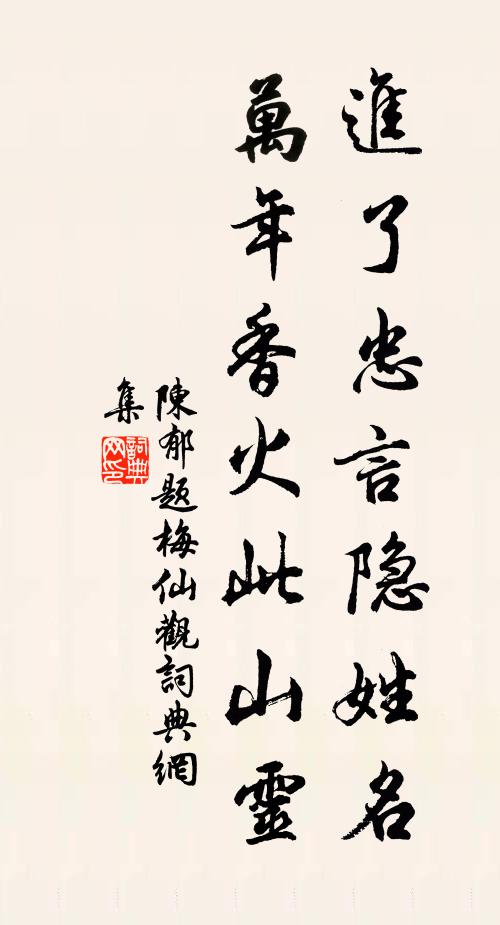 進了忠言隐姓名
萬年香火此山靈
陳郁题梅仙觀詞典網
集
詞典
网印